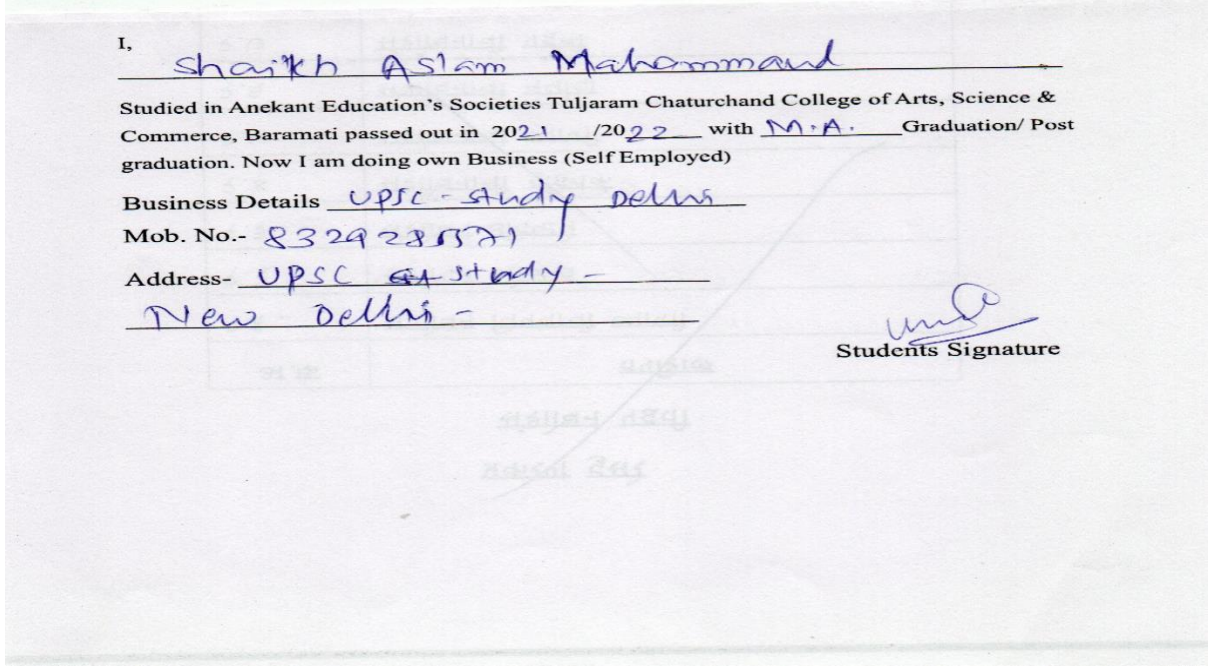 I,
Shaikh Aslam Mahommand
Studied in Anekant Education's Societies Tuljaram Chaturchand College of Arts, Science &
Commerce, Baramati passed out in 2021 /2022 with M.A. Graduation/ Post
graduation. Now I am doing own Business (Self Employed)
Business Details UPSC - Study Delhi
Mob. No.-
Address- UPSC study -
New Delhi -
Students Signature